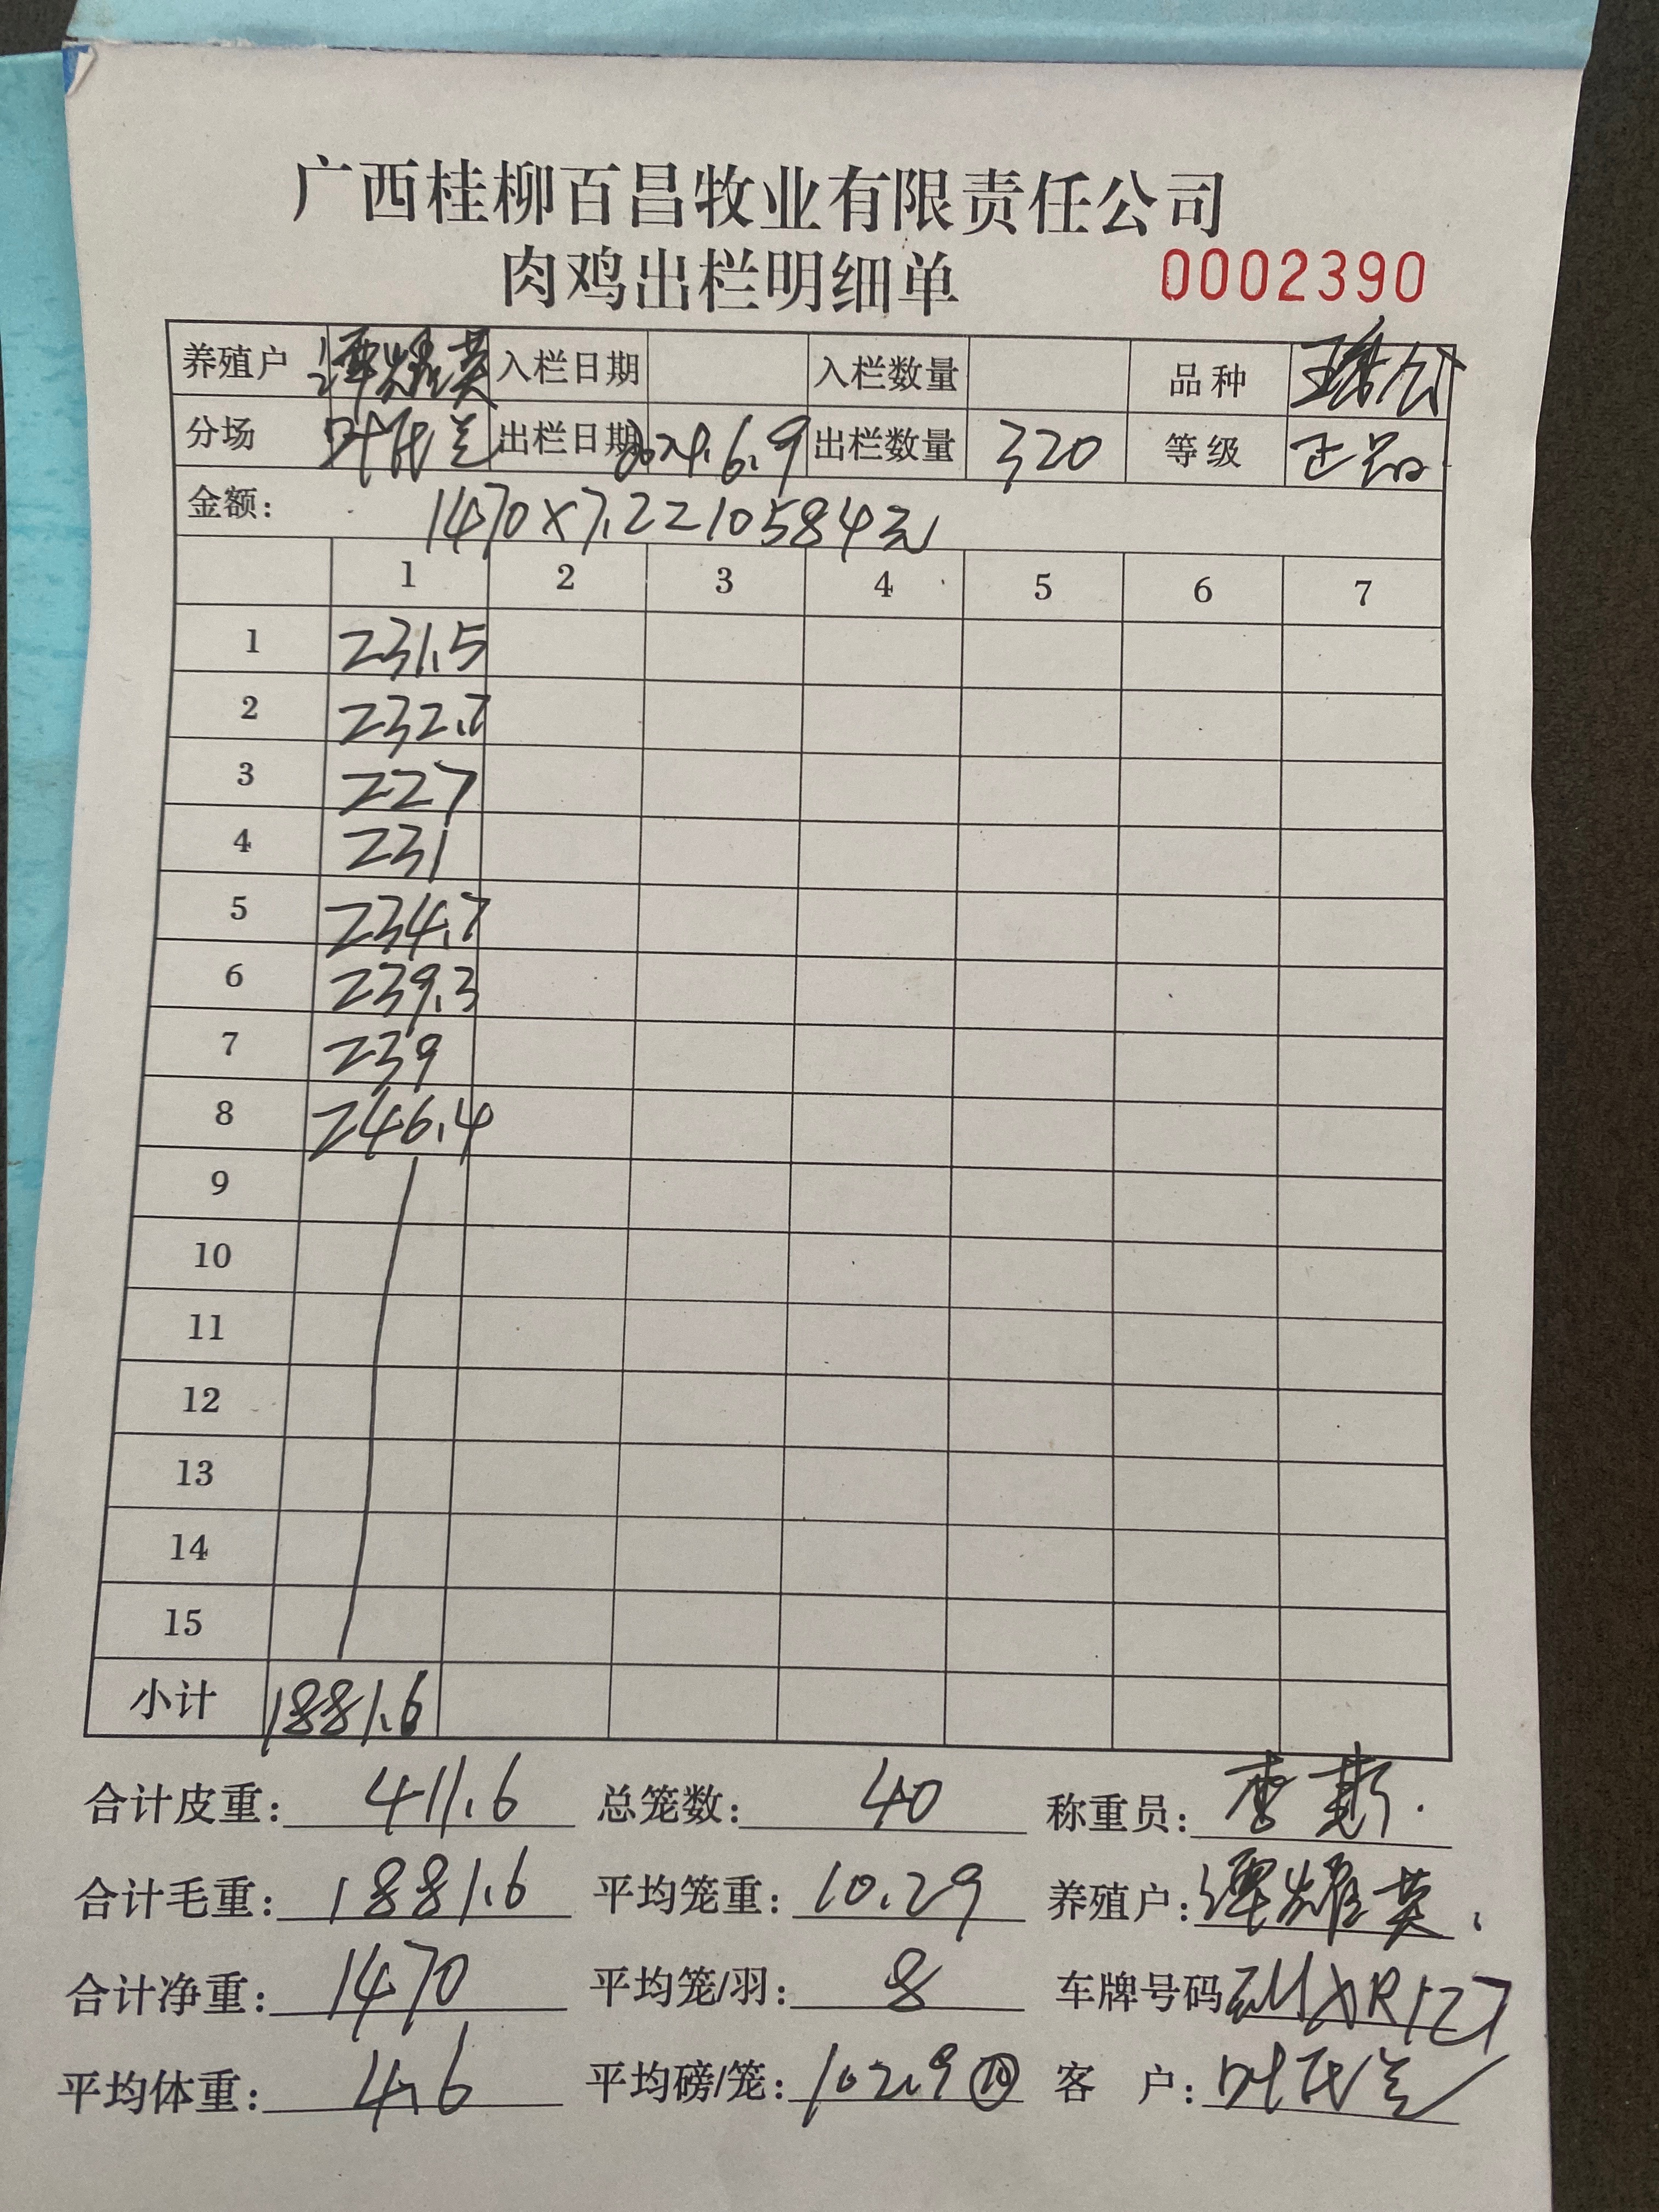 广西桂柳百昌牧业有限责任公司
肉鸡出栏明细单 0002390
养殖户 谭耀英 入栏日期 入栏数量 品种
分场 出栏日期 2024.6.9 出栏数量 320 等级 正品
金额: 1470×7.2=10584元
1 2 3 4 5 6 7
1 231.5
2 232.7
3 227
4 231
5 234.7
6 239.3
7 239
8 246.4
9
10
11
12
13
14
15
小计 1881.6
合计皮重: 411.6 总笼数: 40 称重员: 李
合计毛重: 1881.6 平均笼重: 10.29 养殖户: 谭耀英
合计净重: 1470 平均笼/羽: 8 车牌号码
平均体重: 4.6 平均磅/笼: 102.9 ⑩ 客户: